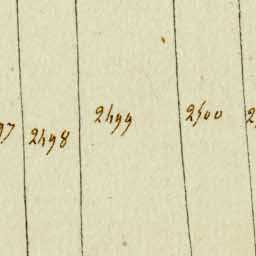 2498
2499
2500